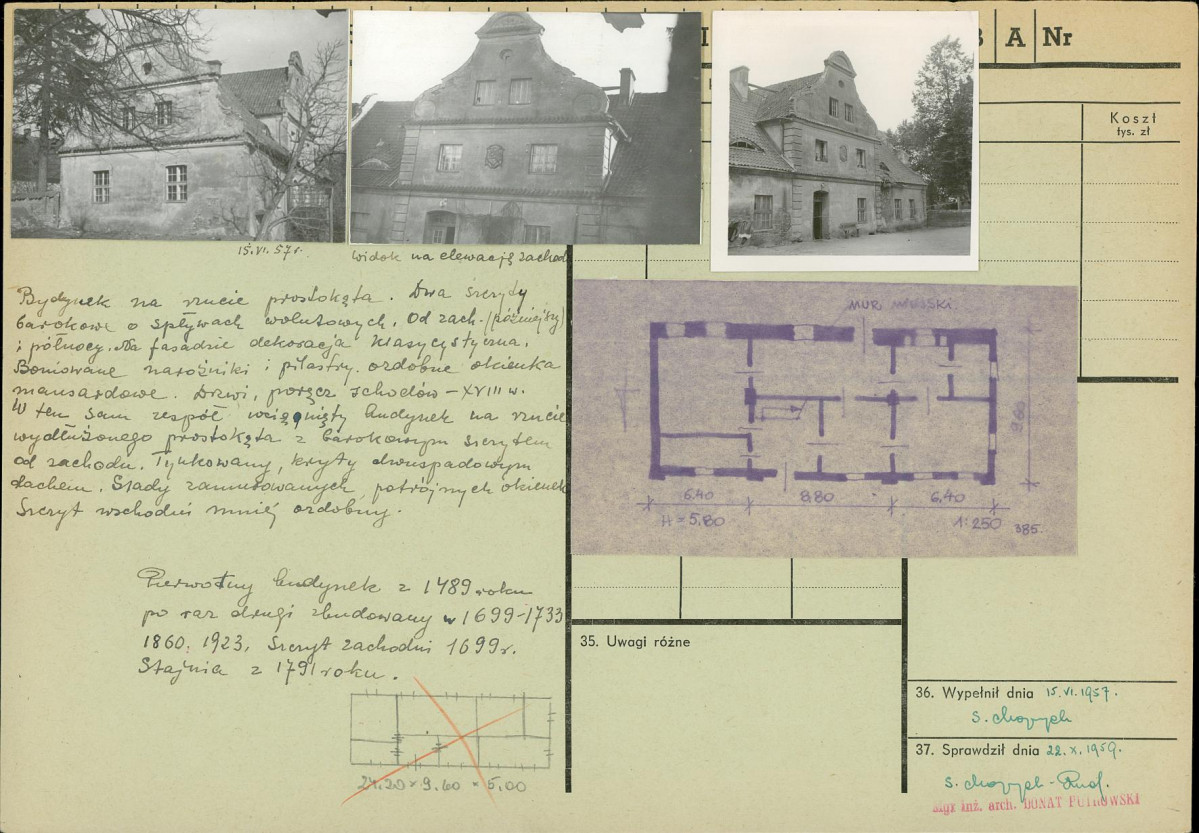 B A Nr
Koszt
tys. zł
15.VI.57r.
widok na elewację zachod
Bydynek na rzucie prostokąta. Dwa szczyty
barokowe o spływach wolutowych. Od zach. (późniejszy)
i północy. Na fasadzie dekoracja klasycystyczna.
Boniowane narożniki i pilastry. ozdobne okienka
mansardowe. Drzwi, poręcz schodów – XVIII w.
W ten sam zespół wciągnięty budynek na rzucie
wydłużonego prostokąta z barokowym szczytem
od zachodu. Tynkowany, kryty dwuspadowym
dachem. Ślady zamurowanych potrójnych okienek
Szczyt wschodni mniej ozdobny.
MUR MIEJSKI
9.60
6.40 8.80 6.40
H = 5,80 1:250 385.
Pierwotny budynek z 1489 roku
po raz drugi zbudowany w 1699-1733
1860, 1923, Szczyt zachodni 1699r.
Stajnia z 1791 roku.
24.20 × 9.60 × 5.00
35. Uwagi różne
36. Wypełnił dnia 15.VI.1957.
37. Sprawdził dnia 22.X.1959.
Mgr inż. arch. DONAT